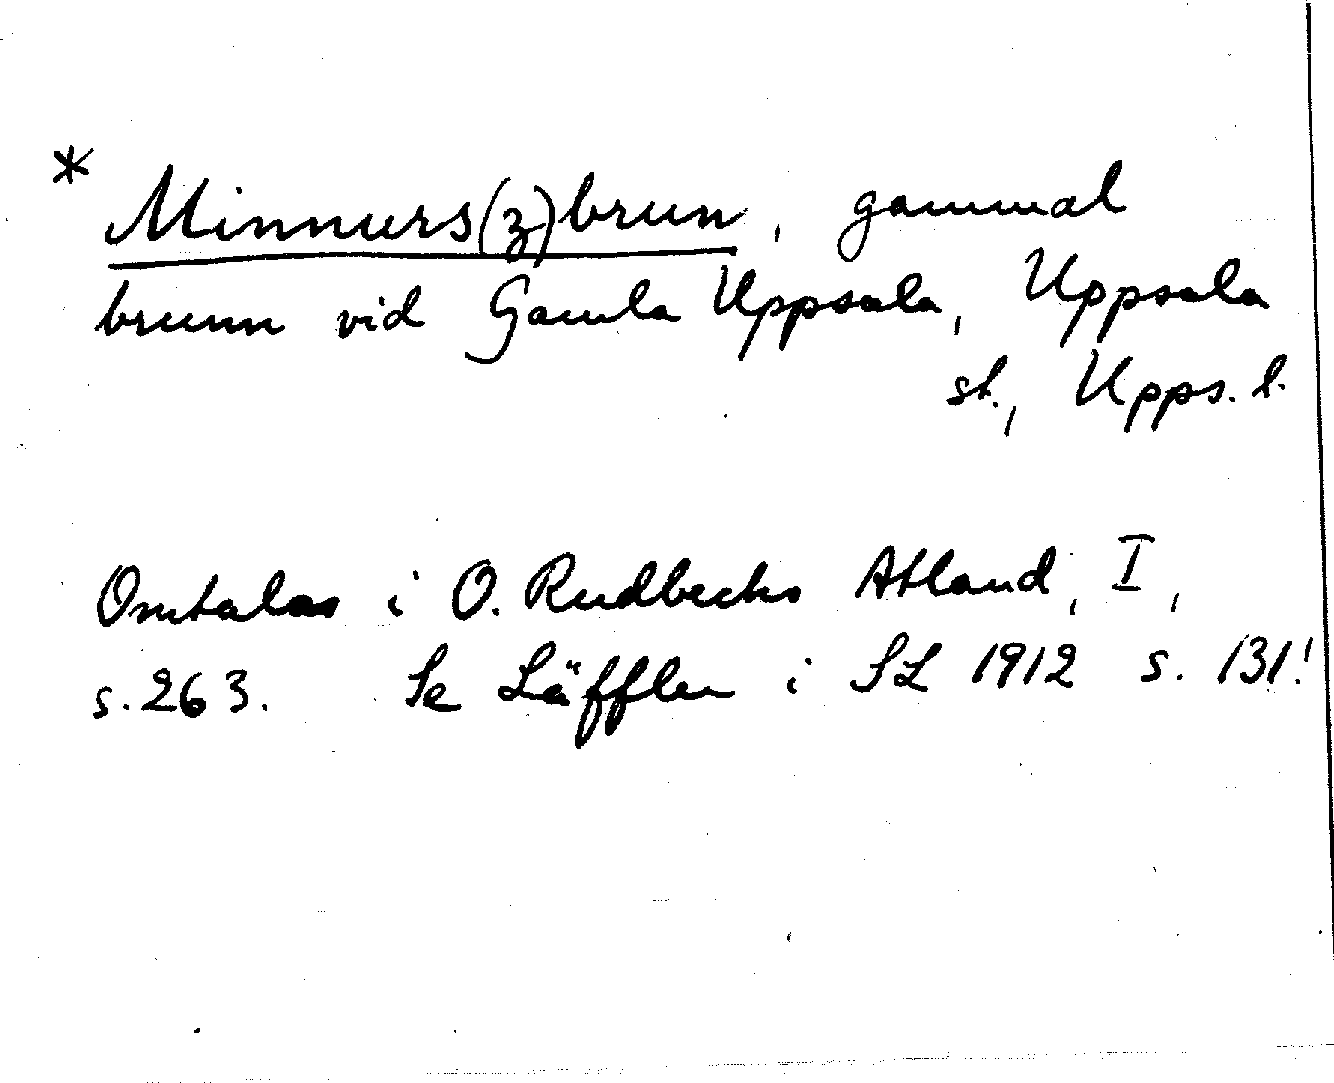 * Minnurs(z)brun, gammal
brunn vid Gamla Uppsala, Uppsala
st., Upps. l.
Omtalas i O. Rudbecks Atland, I,
s. 263. Se Läffler i SL 1912 s. 131!